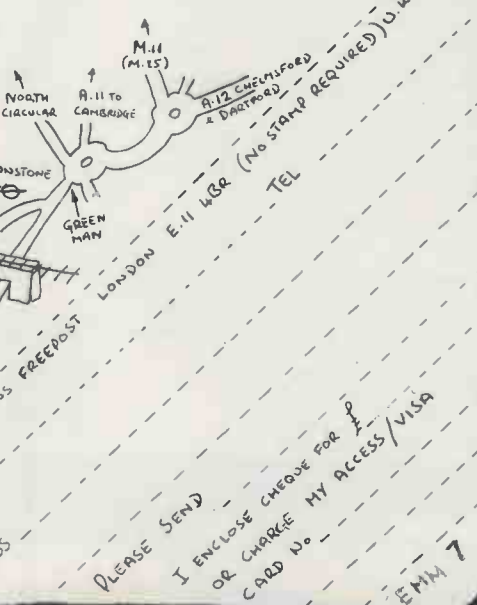 M.11
(M.25)
NORTH
CIRCULAR
A.11 TO
CAMBRIDGE
A.12 CHELMSFORD
& DARTFORD
NSTONE
GREEN
MAN
SS FREEPOST LONDON E.11 4BR (NO STAMP REQUIRED) U.K
TEL
SS
PLEASE SEND
I ENCLOSE CHEQUE FOR £
OR CHARGE MY ACCESS/VISA
CARD No
EMM 7